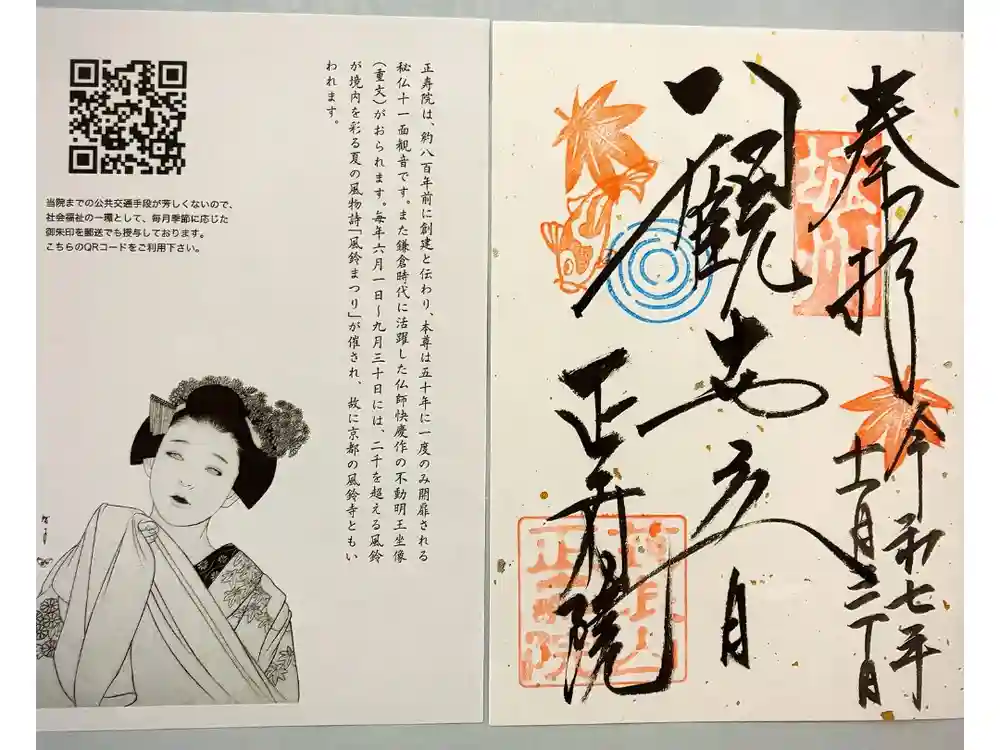 当院までの公共交通手段が芳しくないので、
社会福祉の一環として、毎月季節に応じた
御朱印を郵送でも授与しております。
こちらのQRコードをご利用下さい。
正寿院は、約八百年前に創建と伝わり、本尊は五十年に一度のみ開扉される
秘仏十一面観音です。また鎌倉時代に活躍した仏師快慶作の不動明王坐像
（重文）がおられます。毎年六月一日〜九月三十日には、二千を超える風鈴
が境内を彩る夏の風物詩「風鈴まつり」が催され、故に京都の風鈴寺ともい
われます。
奉拝
令和七年
十一月
正寿院